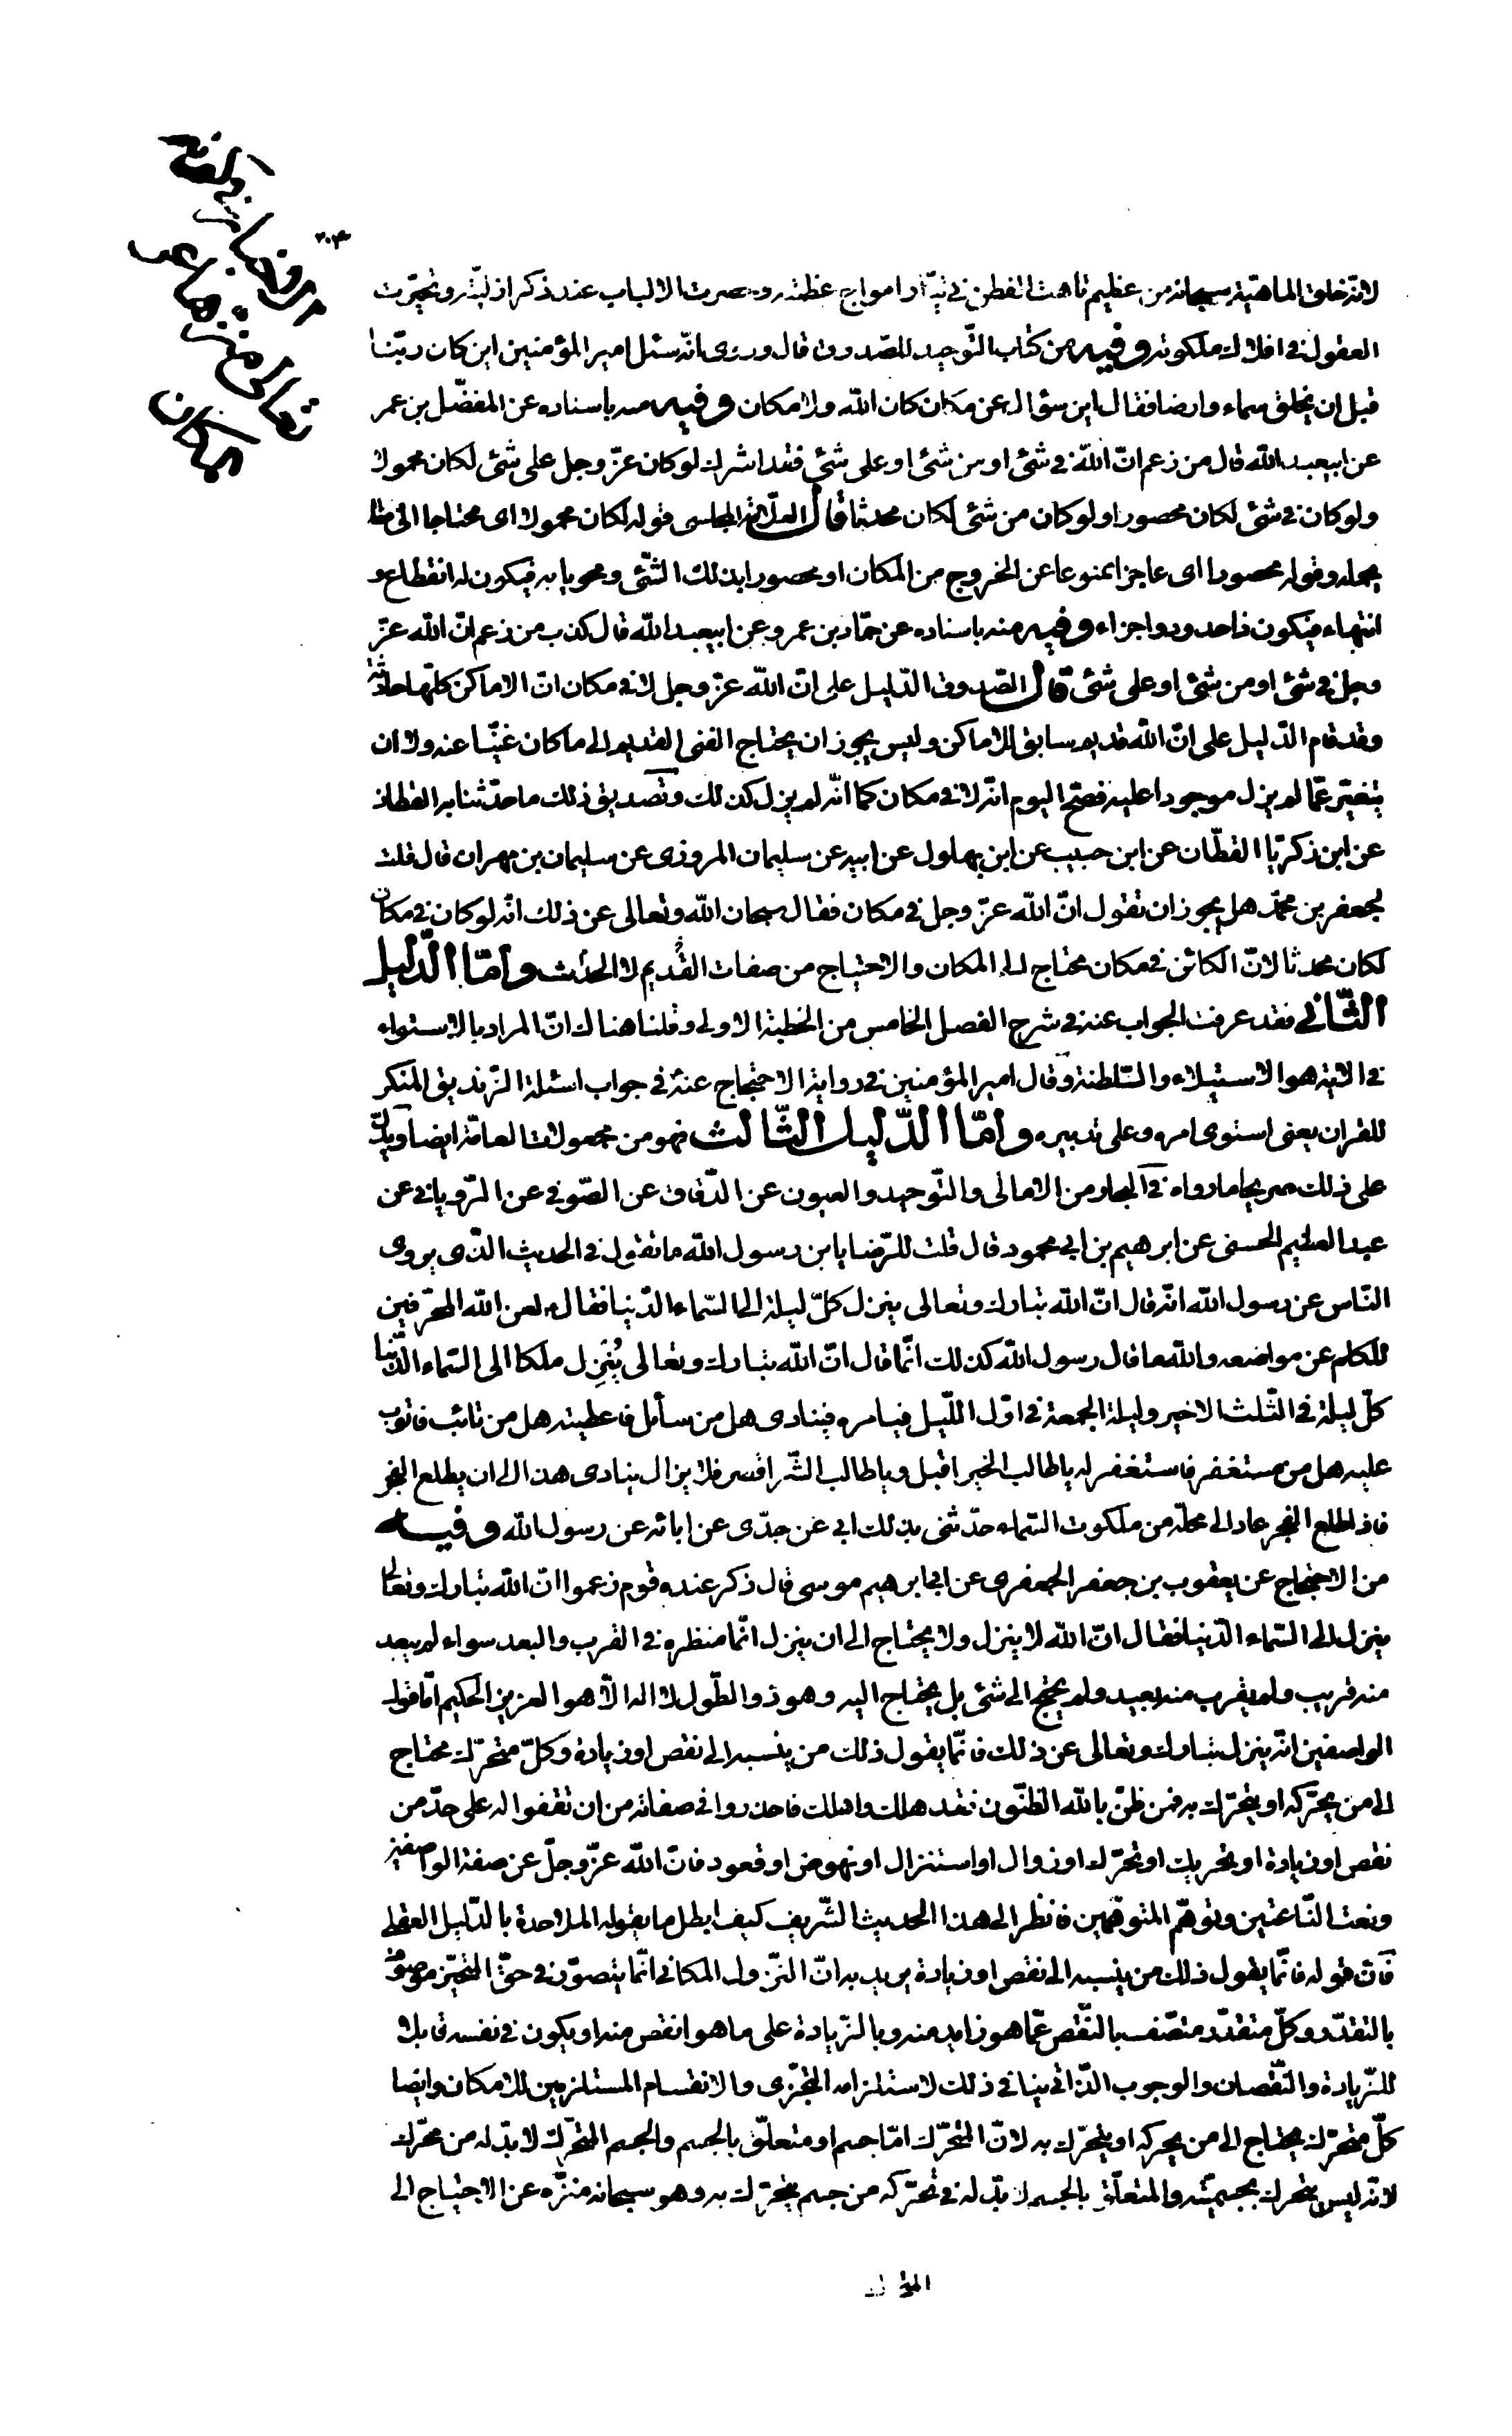 في انه
الاخبار في
تعالى منزها عن
المكان
٢٠٣
لانّه خلق الماهيّة سبحانه من عظيم تاهت الفطن في تيّار امواج عظمته وحصرت الالباب عند ذكر ازليّته وتحيّرت
العقول في افلاك ملكوته وفيه من كتاب التّوحيد للصّدوق قال وروى انّه سئل امير المؤمنين اين كان ربّنا
قبل ان يخلق سماء وارضا فقال اين سؤال عن مكان كان الله ولا مكان وفيه منه باسناده عن المفضّل بن عمر
عن ابيعبد الله قال من زعم انّ الله في شئ او من شئ او على شئ فقد اشرك لو كان عزّ وجل على شئ لكان محمولا
ولو كان في شئ لكان محصورا ولو كان من شئ لكان محدثا قال العلّامة المجلسى قوله لكان محمولا اى محتاجا الى ما
يحمله وقوله محصورا اى عاجزا ممنوعا عن الخروج من المكان او محصورا بذلك الشّئ ومحويا به فيكون له انقطاع و
انتهاء فيكون ذا حدود واجزاء وفيه منه باسناده عن حمّاد بن عمرو عن ابيعبد الله قال كذب من زعم انّ الله عزّ
وجل في شئ او من شئ او على شئ قال الصّدوق الدّليل على انّ الله عزّ وجل لا في مكان انّ الاماكن كلّها حادثة
وقد قام الدّليل على انّ الله قديم سابق للاماكن وليس يجوز ان يحتاج الغنى القديم الى ما كان غنيّا عنه ولا ان
يتغيّر عمّا لم يزل موجودا عليه فصحّ اليوم انّه لا في مكان كما انّه لم يزل كذلك وتصديق ذلك ما حدّثنا به القطان
عن ابن زكريّا القطّان عن ابن حبيب عن ابن بهلول عن ابيه عن سليمان المروزى عن سليمان بن مهران قال قلت
لجعفر بن محمّد هل يجوز ان نقول انّ الله عزّ وجل في مكان فقال سبحان الله وتعالى عن ذلك انّه لو كان في مكان
لكان محدثا لانّ الكائن في مكان محتاج الى المكان والاحتياج من صفات القديم لا الحدث وامّا الدّليل
الثّاني فقد عرفت الجواب عنه في شرح الفصل الخامس من الخطبة الاولى وقلنا هناك انّ المراد بالاستواء
في الاية هو الاستيلاء والسّلطنة وقال امير المؤمنين في رواية الاحتجاج عنه في جواب اسئلة الزّنديق المنكر
للقران يعنى استوى امره وعلى تدبيره وامّا الدّليل الثّالث فهو من مجعولات العامّة ايضا ويدلّ
على ذلك صريحا ما رواه في البحار من الامالى والتّوحيد والعيون عن الدّقاق عن الصّوفى عن الرّويانى عن
عبد العظيم الحسنى عن ابرهيم بن ابى محمود قال قلت للرّضا يابن رسول الله ما تقول في الحديث الّذى يروى
النّاس عن رسول الله انّه قال انّ الله تبارك وتعالى ينزل كلّ ليلة الى السّماء الدّنيا فقال لعن الله المحرّفين
للكلم عن مواضعه والله ما قال رسول الله كذلك انّما قال انّ الله تبارك وتعالى يُنزِل ملكا الى السّماء الدّنيا
كلّ ليلة في الثّلث الاخير وليلة الجمعة في اوّل اللّيل فيامره فينادى هل من سأيل فاعطيته هل من تائب فاتوب
عليه هل من مستغفر فاستغفر له يا طالب الخير اقبل ويا طالب الشّر اقصر فلا يزال ينادى هذا الى ان يطلع الفجر
فاذا طلع الفجر عاد الى محلّه من ملكوت السّماء حدّثنى بذلك ابى عن جدّى عن ابائه عن رسول الله وفيه
من الاحتجاج عن يعقوب بن جعفر الجعفرى عن ابى ابرهيم موسى قال ذكر عنده قوم زعموا انّ الله تبارك وتعالى
ينزل الى السّماء الدّنيا فقال انّ الله لا ينزل ولا يحتاج الى ان ينزل انّما منظره في القرب والبعد سواء لم يبعد
منه قريب ولم يقرب منه بعيد ولم يحتج الى شئ بل يحتاج اليه وهو ذو الطّول لا اله الّا هو العزيز الحكيم امّا قول
الواصفين انّه ينزل تبارك وتعالى عن ذلك فانّما يقول ذلك من ينسبه الى نقص او زيادة وكلّ متحرّك محتاج
الى من يحرّكه او يتحرّك به فمن ظنّ بالله الظنّون فقد هلك واهلك فاحذروا في صفاته من ان تقفوا له على حدّ من
نقص او زيادة او تحريك او تحرّك او زوال او استنزال او نهوض او قعود فانّ الله عزّ وجلّ عن صفة الواصفين
ونعت النّاعتين وتوهّم المتوهّمين فانظر الى هذا الحديث الشّريف كيف ابطل ما يقوله الملاحدة بالدّليل العقلى
فانّ قوله فانّما يقول ذلك من ينسبه الى نقص او زيادة يريد به انّ النّزول المكانى انّما يتصوّر في حقّ المتحيّز موصوف
بالتقدّر وكلّ متقدّر متصّف بالنّقص عمّا هو زايد منه وبالزّيادة على ما هو انقص منه او يكون في نفسه قابلا
للزّيادة والنّقصان والوجوب الذّاتى ينافى ذلك لاستلزامه التّجزّى والانقسام المستلزمين للامكان وايضا
كلّ متحرّك يحتاج الى من يحركه او يتحرّك به لانّ المتحرّك امّا جسم او متعلّق بالجسم والجسم المتحرّك لا بدّ له من محرّك
لانّه ليس يتحرك بجسميّته والمتعلّق بالجسم لا بدّ له في تحرّكه من جسم يتحرّك به وهو سبحانه منزّه عن الاحتياج الى